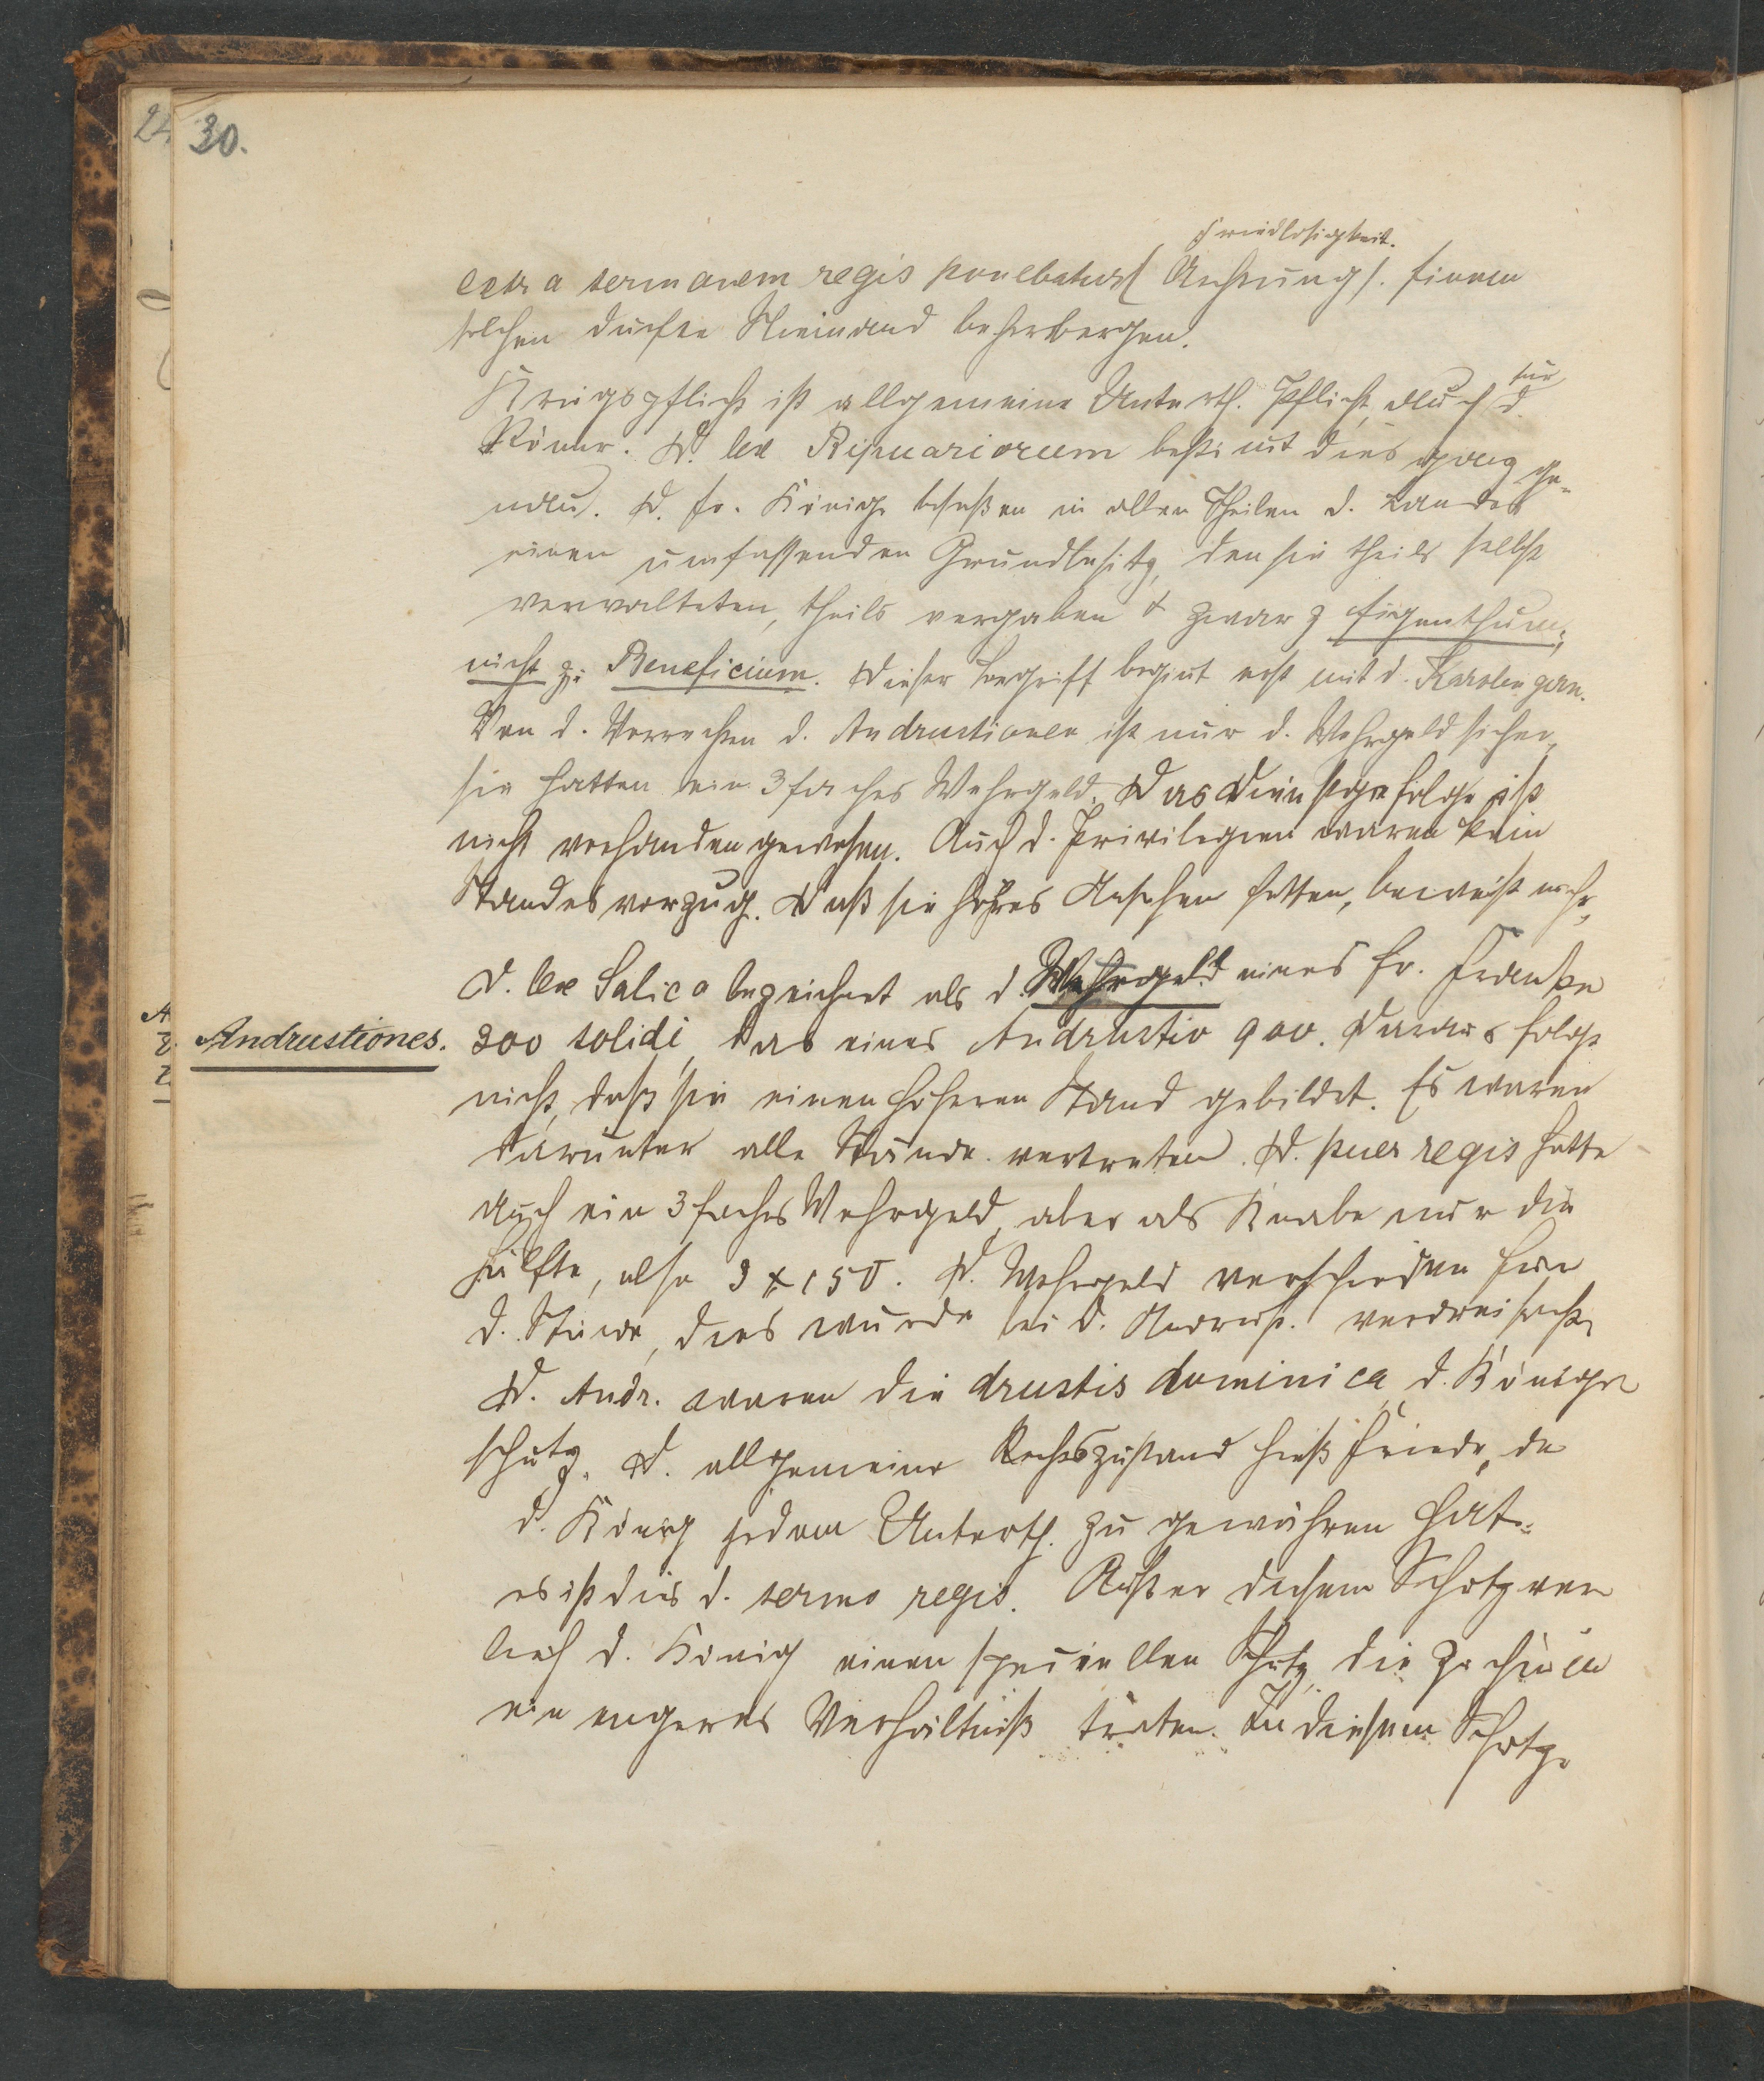 24.
30.
Friedlosigkeit.
extra sermonem regis ponebatur ( Aechtung ). Einen
solchen durfte Niemand beherbergen.
für
Kriegspflicht ist allgemeine Unterth. Pflicht, auch d.
Römer. D. lex Ripuariorum bestimt dies ganz ge-
nau. D. fr. Könige besaßen in allen Theilen d. Landes
einen umfassenden Grundbesitz, den sie theils selbst
verwalteten, theils vergaben & zwar z Eigenthum,
nicht z. Beneficium. Dieser Begriff begint erst mit d. Karolingern.
Von d. Vorrechten d. Andrustionen ist nur d. Wehrgeld sicher,
sie hatten ein 3faches Wehrgeld. Das Dienstgefolge ist
nicht vorhanden gewesen. Auch d. Privilegien waren kein
Standesvorzug. Daß sie höhres Ansehen hatten, beweist nichts.
D. lex Salica bezeichnet als d. Wehrgeld eines fr. Franken
Andrustiones. 300 solidi, das eines Andrustio 900. Daraus folgt
nicht, daß sie einen höheren Stand gebildet. Es waren
darunter alle Stände vertreten. D. puer regis hatte
auch ein 3faches Wehrgeld, aber als Knabe nur die
Hälfte, also 3 x 150. D. Wehrgeld verschieden für
d. Stände, dies wurde bei d. Andrust. verdreifacht.
D. Andr. waren die drustis dominica, d. Königs
schutz. D. allgemeine Rechtszustand hieß Friede, da
d. König jedem Unterth. zu gewähren hat.
es ist dies d. sermo regis. Außer diesem Schutz ver
lieh d. König einen speciellen Schutz, die zu ihm in
ein engeres Verhältniß traten. In diesem Schutze